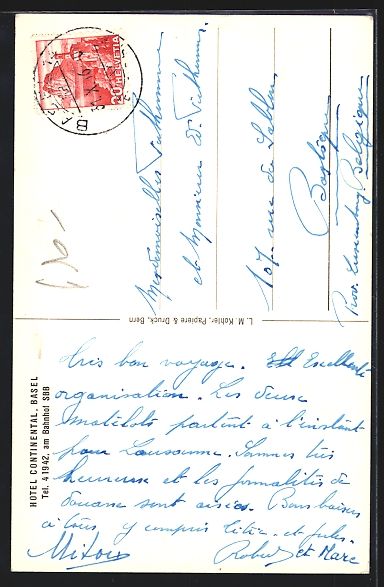 HELVETIA
Mesdemoiselles
et Monsieur
107, rue du Sablon
Bastogne
Prov. Luxembourg Belgique
L. M. Kohler, Papiere & Druck, Bern
HOTEL CONTINENTAL, BASEL
Tel. 4 19 42, am Bahnhof SBB
Très bon voyage. Excellente
organisation. Les deux
matelots partent à l'instant
pour Lausanne. Sommes très
heureux et les formalités de
douane sont aisées. Bons baisers
à tous y compris Titie et Jules.
Mitou
Robert et Marc